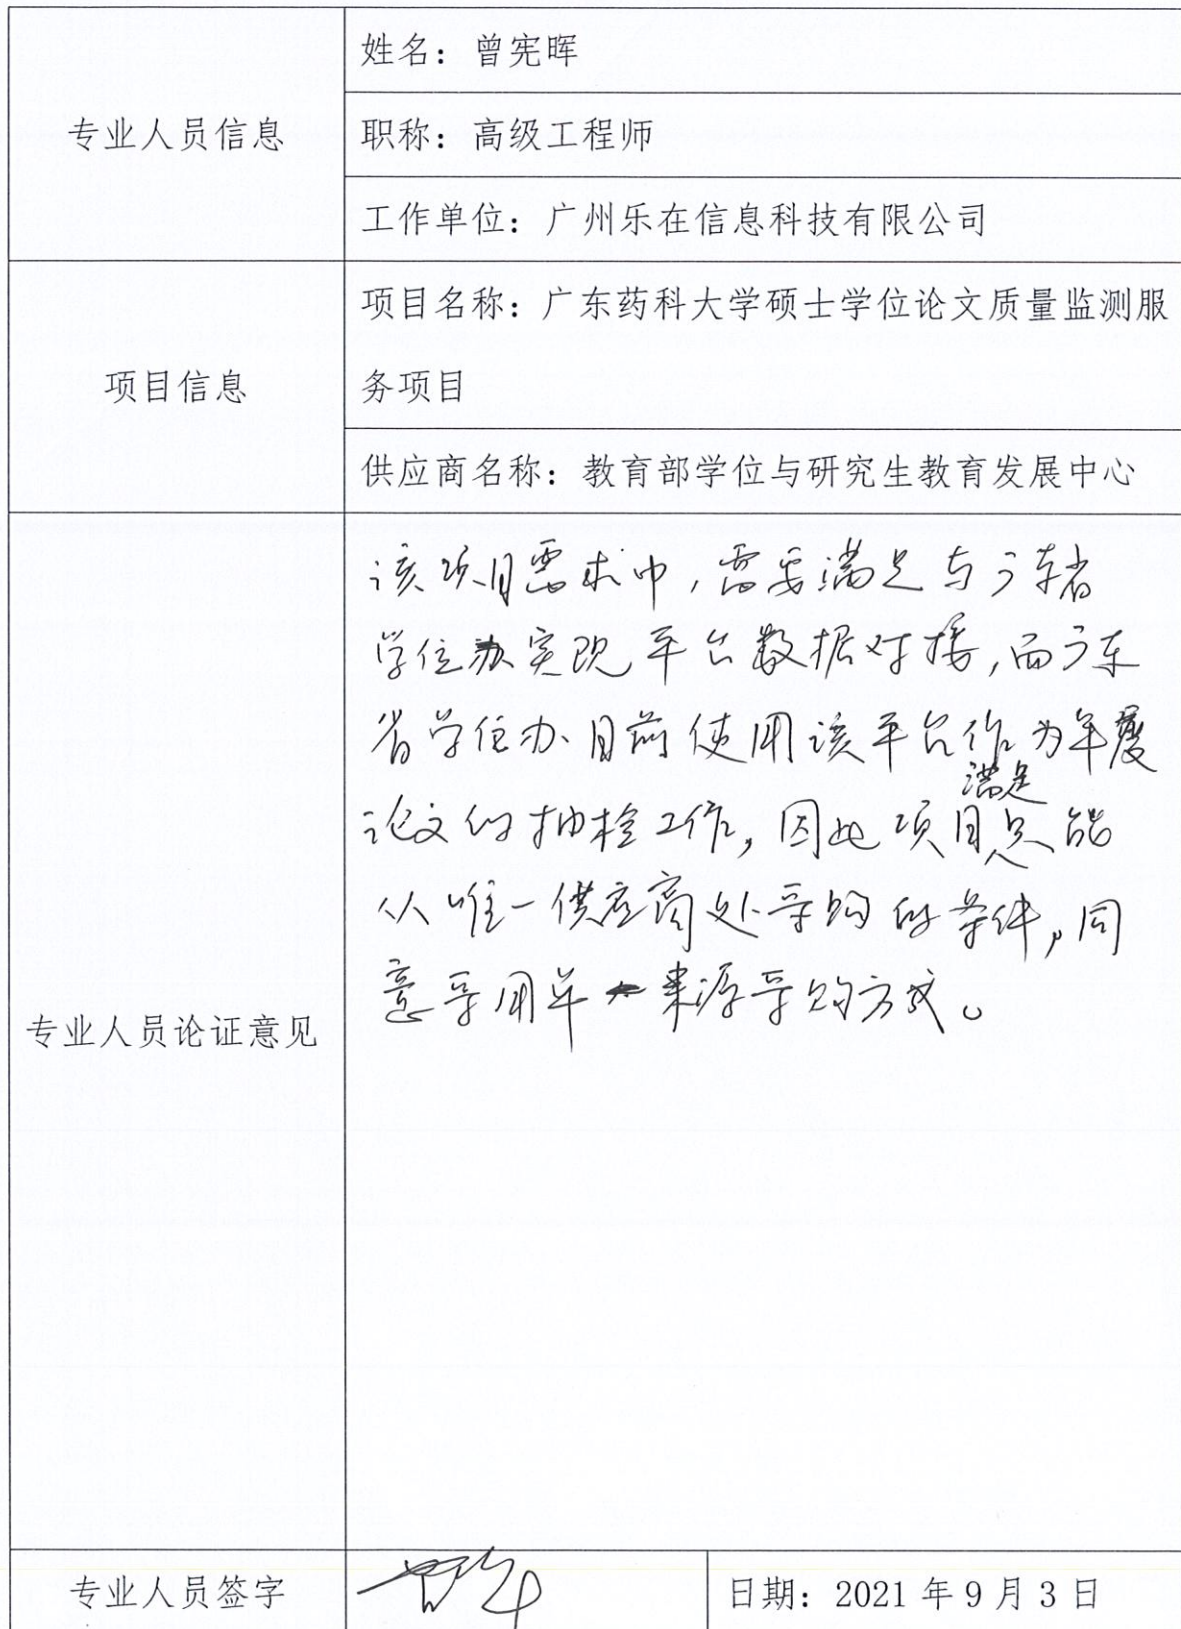 专业人员信息
姓名：曾宪晖
职称：高级工程师
工作单位：广州乐在信息科技有限公司
项目信息
项目名称：广东药科大学硕士学位论文质量监测服
务项目
供应商名称：教育部学位与研究生教育发展中心
专业人员论证意见
该项目需求中，需要满足与广东省
学位办实现平台数据对接，而广东
省学位办目前使用该平台作为年度
论文的抽检工作，因此项目满足只能
从唯一供应商处采购的条件，同
意采用单一来源采购方式。
专业人员签字
日期：2021年9月3日